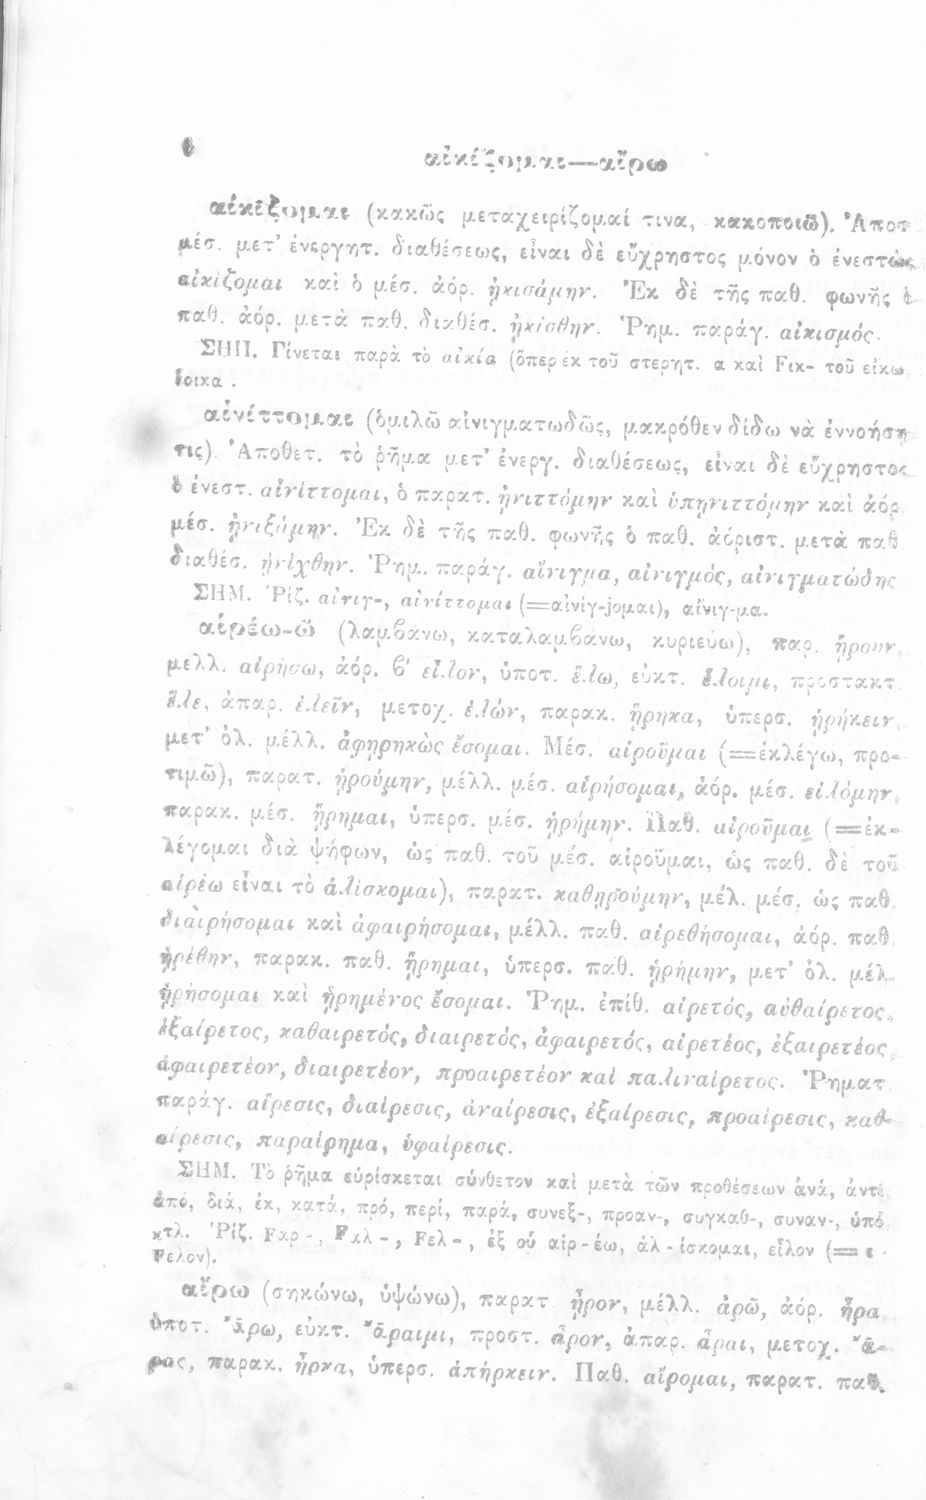 6
αἰκίζομαι—αἴρω
αἰκίζομαι (κακῶς μεταχειρίζομαί τινα, κακοποιῶ). Ἀποτ
μέσ. μετ' ἐνεργητ. διαθέσεως, εἶναι δὲ εὔχρηστος μόνον ὁ ἐνεστὼς
αἰκίζομαι καὶ ὁ μέσ. ἀόρ. ᾐκισάμην. Ἐκ δὲ τῆς παθ. φωνῆς ὁ
παθ. ἀόρ. μετὰ παθ. διαθέσ. ᾐκίσθην. Ῥημ. παράγ. αἰκισμός.
ΣΗΠ. Γίνεται παρὰ τὸ αἰκία (ὅπερ ἐκ τοῦ στερητ. α καὶ Fικ- τοῦ εἴκω,
ἔοικα .
αἰνίττομαι (ὁμιλῶ αἰνιγματωδῶς, μακρόθεν δίδω νὰ ἐννοήσῃ
τις). Ἀποθετ. τὸ ῥῆμα μετ' ἐνεργ. διαθέσεως, εἶναι δὲ εὔχρηστος
ὁ ἐνεστ. αἰνίττομαι, ὁ παρατ. ᾐνιττόμην καὶ ὑπῃνιττόμην καὶ ἀόρ.
μέσ. ᾐνιξάμην. Ἐκ δὲ τῆς παθ. φωνῆς ὁ παθ. ἀόριστ. μετὰ παθ
διαθέσ. ᾐνίχθην. Ῥημ. παράγ. αἴνιγμα, αἰνιγμός, αἰνιγματώδης
ΣΗΜ. Ῥίζ. αἰνιγ-, αἰνίττομαι (=αἰνίγ-jομαι), αἴνιγ-μα.
αἱρέω-ῶ (λαμβάνω, καταλαμβάνω, κυριεύω), παρ. ᾕρουν,
μελλ. αἱρήσω, ἀόρ. β' εἷλον, ὑποτ. ἕλω, εὐκτ. ἕλοιμι, προστακτ.
ἕλε, ἀπαρ. ἑλεῖν, μετοχ. ἑλών, παρακ. ᾕρηκα, ὑπερσ. ᾑρήκειν,
μετ' ὁλ. μέλλ. ἀφῃρηκὼς ἔσομαι. Μέσ. αἱροῦμαι (=ἐκλέγω, προ-
τιμῶ), παρατ. ᾑρούμην, μέλλ. μέσ. αἱρήσομαι, ἀόρ. μέσ. εἱλόμην,
παρακ. μέσ. ᾕρημαι, ὑπερσ. μέσ. ᾑρήμην. Παθ. αἱροῦμαι (=ἐκ-
λέγομαι διὰ ψήφων, ὡς παθ. τοῦ μέσ. αἱροῦμαι, ὡς παθ. δὲ τοῦ
αἱρέω εἶναι τὸ ἁλίσκομαι), παρατ. καθῃρούμην, μέλ. μέσ. ὡς παθ.
διαιρήσομαι καὶ ἀφαιρήσομαι, μέλλ. παθ. αἱρεθήσομαι, ἀόρ. παθ.
ᾑρέθην, παρακ. παθ. ᾕρημαι, ὑπερσ. παθ. ᾑρήμην, μετ' ὁλ. μέλ.
ᾑρήσομαι καὶ ᾑρημένος ἔσομαι. Ῥημ. ἐπίθ. αἱρετός, αὐθαίρετος,
ἐξαίρετος, καθαιρετός, διαιρετός, ἀφαιρετός, αἱρετέος, ἐξαιρετέος,
ἀφαιρετέον, διαιρετέον, προαιρετέον καὶ παλιναίρετος. Ῥηματ.
παράγ. αἵρεσις, διαίρεσις, ἀναίρεσις, ἐξαίρεσις, προαίρεσις, καθ-
αίρεσις, παραίρημα, ὑφαίρεσις.
ΣΗΜ. Τὸ ῥῆμα εὑρίσκεται σύνθετον καὶ μετὰ τῶν προθέσεων ἀνά, ἀντί,
ἀπό, διά, ἐκ, κατά, πρό, περί, παρά, συνεξ-, προαν-, συγκαθ-, συναν-, ὑπό
κτλ. Ῥίζ. Fαρ-, Fαλ-, Fελ-, ἐξ οὗ αἱρ-έω, ἁλ-ίσκομαι, εἷλον (= ε-
Fελον).
αἴρω (σηκώνω, ὑψώνω), παρατ ᾖρον, μέλλ. ἀρῶ, ἀόρ. ἦρα,
ὑποτ. ἄρω, εὐκτ. ἄραιμι, προστ. ἆρον, ἀπαρ. ἆραι, μετοχ. ἄ-
ρας, παρακ. ἦρκα, ὑπερσ. ἀπήρκειν. Παθ. αἴρομαι, παρατ. παθ.